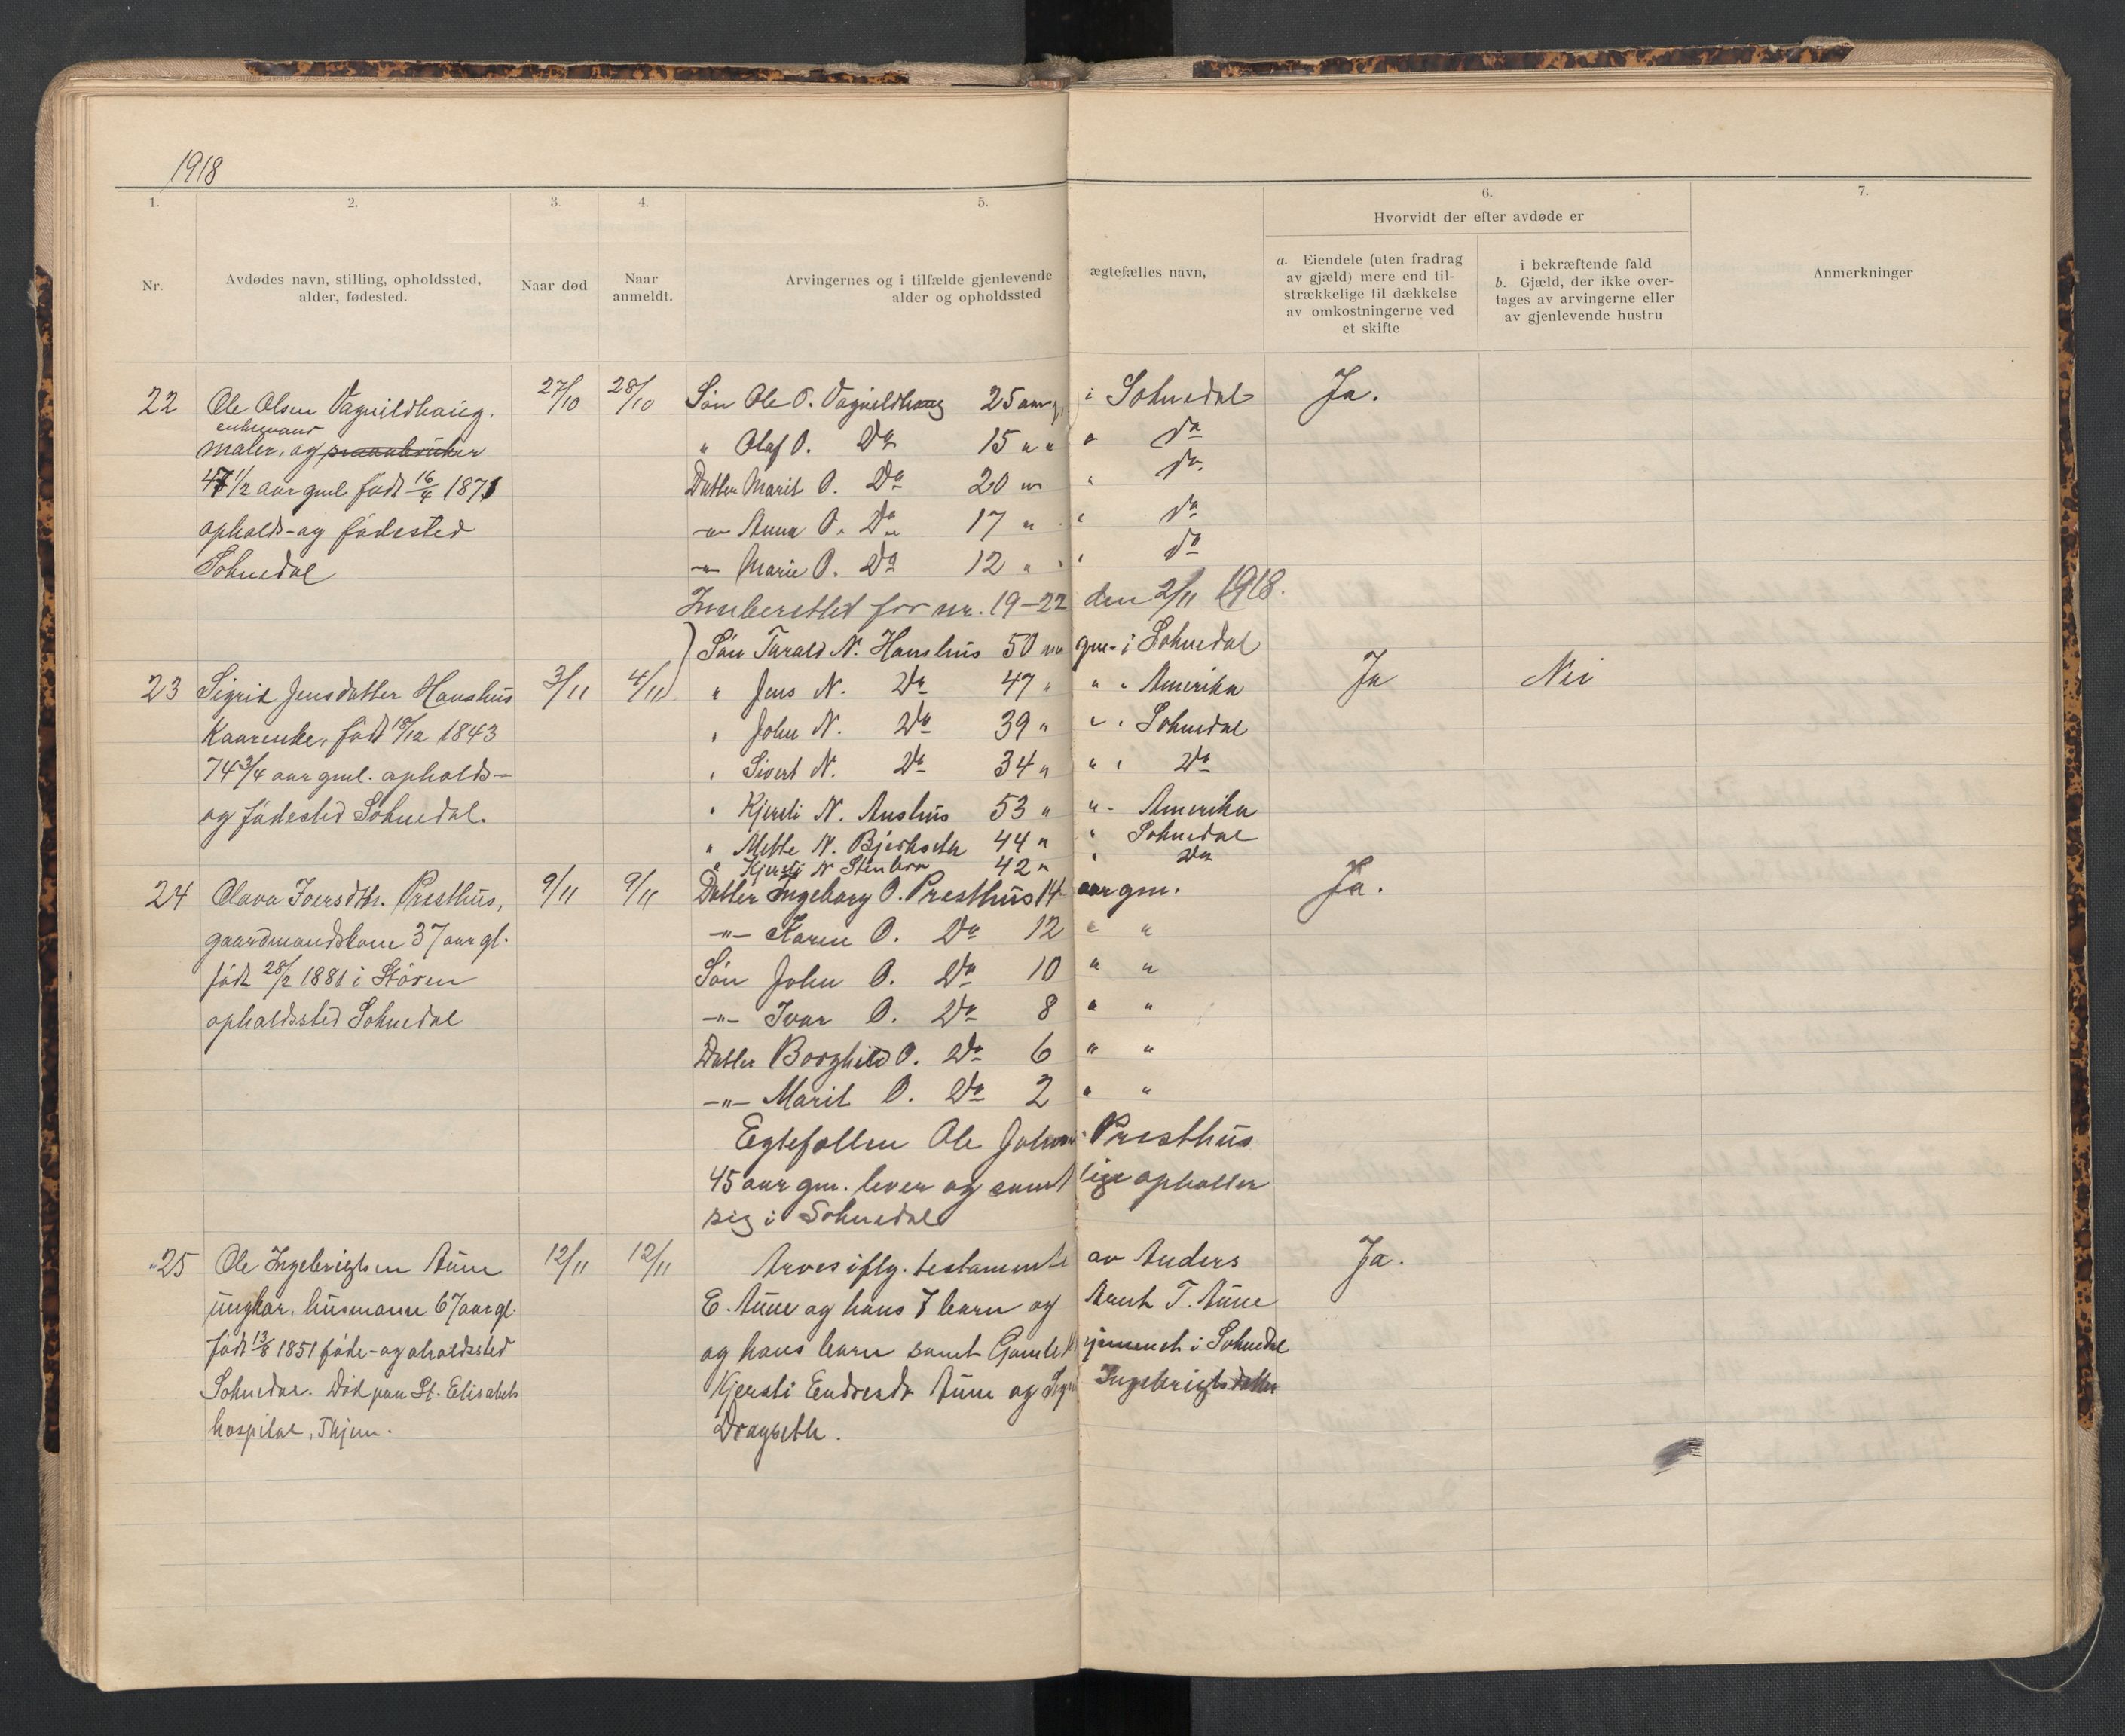 1918
1. 2. 3. 4. 5. 6. 7.
Hvorvidt der efter avdøde er
Nr. Avdødes navn, stilling, opholdssted, alder, fødested. Naar død Naar anmeldt. Arvingernes og i tilfælde gjenlevende ægtefælles navn, alder og opholdssted
a. Eiendele (uten fradrag av gjæld) mere end tilstrækkelige til dækkelse av omkostningerne ved et skifte
i bekræftende fald b. Gjæld, der ikke overtages av arvingerne eller av gjenlevende hustru
Anmerkninger
22 Ole Olsen Vagnildhaug. 27/10 28/10 Søn Ole O. Vagnildhaug 25 aar g. i Soknedal Ja.
enkemand
maler, og smaabruker " Olaf O. Do 15 " " " do
47 1/2 aar gml. født 16/4 1871 Datter Marit O. Do 20 " " do
opholds- og fødested -"- Anna O. Do 17 " " do
Soknedal -"- Marie O. Do 12 " " do
Innberettet for nr. 19-22 den 2/11 1918.
Søn Tarald N. Hanshus 50 aar gm. i Soknedal
23 Sigrid Jensdatter Hanshus 3/11 4/11 " Jens N. Do 47 " " " Amerika Ja Nei
Kaarenke, født 18/12 1843 " John N. Do 39 " " " Soknedal
74 3/4 aar gml. opholds- " Sivert N. Do 34 " " " Do
og fødested Soknedal. " Kjersti N. Aushus 53 " " - Amerika
" Mette N. Bjerkseth 44 " " Soknedal
" Kjersti N Stenbro 42 " " Do
24 Olava Iversdtr. Presthus, 9/11 9/11 Datter Ingeborg O. Presthus 14 aar gm. Ja.
gaardmandskone 37 aar gl. -"- Karen O. Do 12 " "
født 28/2 1881 i Støren Søn John O. Do 10 " "
opholdssted Soknedal -"- Ivar O. Do 8 " "
Datter Borghild O. Do 6 " "
-"- Marit O. Do 2 " "
Egtefællen Ole Johnsen Presthus
45 aar gm. lever og samtlige opholder
sig i Soknedal
25 Ole Ingebrigtsen Aune 12/11 12/11 Arves iflg. testamente av Anders Ja.
ungkar, husmann 67 aar gl. E. Aune og hans 7 barn og Arnt T. Aune
født 13/8 1851 føde- og oholdssted og hans barn samt Gamlehjemmet i Soknedal
Soknedal. Død paa St. Elisabeth Kjersti Endresdr Aune og Ingebrigtsdatter
hospital, Thjem. Dragseth.